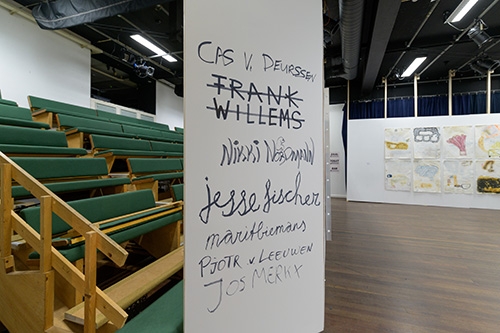 CAS V. DEURSSEN
FRANK
WILLEMS
NIKKI
jesse fischer
marit bremans
PJOTR v LEEUWEN
JOS MERKX